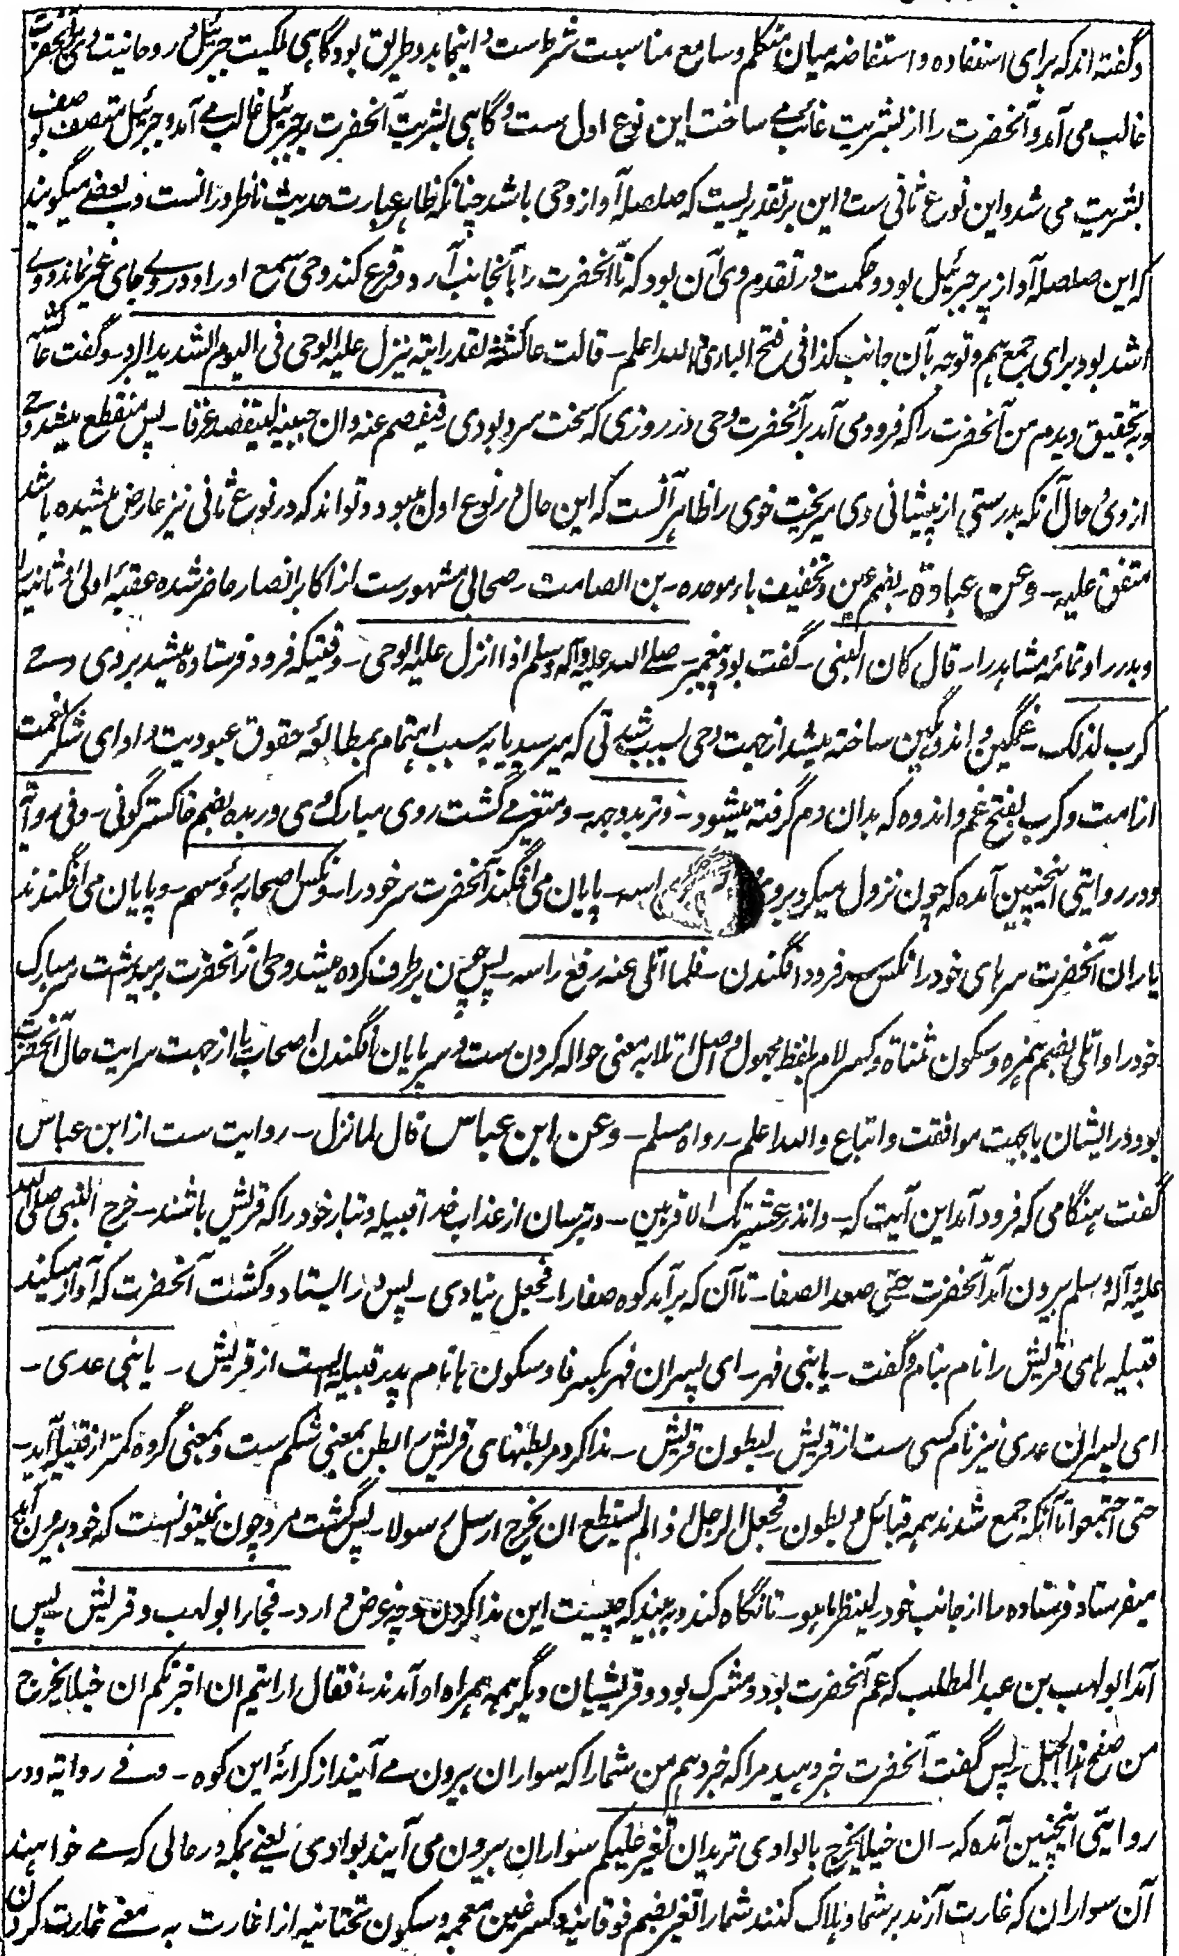 و گفته اند که برای استفاده و استفاضه میان متکلم و سامع مناسبت شرط است و اینجا بدو طریق بود گاهی ملکیت جبرئیل و روحانیت وی بر آنحضرت
غالب می آمد و آنحضرت را از بشریت غائب می ساخت این نوع اول ست و گاهی بشریت آنحضرت بر جبرئیل غالب می آمد و جبرئیل متصف بوصف
بشریت می شد و این نوع ثانی ست و این بر تقدیریست که صلصله آواز وحی باشد چنانکه ظاهر عبارت حدیث ناظر در انست و بعضے میگویند
که این صلصله آواز پر جبرئیل بود و حکمت در تقدم وی آن بود که تا آنحضرت را بآنجانب آرد و قرع کند وحی سمع او را و در وے جای غیر نماند و وے
اشد بود برای جمع هم و توجه بآن جانب کذا فی فتح الباری والله اعلم ۔ قالت عائشة لقد رایته ینزل علیه الوحی فی الیوم الشدید البرد ۔ و گفت عائشه
و به تحقیق دیدم من آنحضرت را که فرود می آمد بر آنحضرت وحی در روزی که سخت سرد بودی فیفصم عنه وان جبینه لیتفصد عرقا ۔ پس منقطع میشد وحے
از وی و حال آنکه بدرستی از پیشانی وی میریخت خوی را ظاهر آنست که این حال در نوع اول میبود و تواند که در نوع ثانی نیز عارض میشده باشد
متفق علیه ۔ وعن عبادة ۔ بضم عین و تخفیف باء موحده ۔ بن الصامت ۔ صحابی مشهورست از اکابر انصار حاضر شده عقبه اولی و ثانیه را
و بدر را و تمامه مشاهد را ۔ قال کان النبی ۔ گفت بود پیغمبر ۔ صلے الله علیه وآله وسلم اذا انزل علیه الوحی ۔ وقتیکه فرود فرستاده میشد بر وی وحے
کرب لذلک ۔ غمگین و اندوگین ساخته میشد از جهت وحی بسبب شدتی که میرسید یا به سبب اهتمام بمطالبه حقوق عبودیت و ادای شکر نعمت
از امت و کرب بفتح غم و اندوه که بدان دم گرفته میشود ۔ وتربد وجهه ۔ و متغیر می گشت روی مبارک وی و ربده بضم خاکستر گونی ۔ وفی روایة
و در روایتی اینچنین آمده که چون نزول میکرد بر وی راسه ۔ پایان می افگند آنحضرت سر خود را ۔ ونکس اصحابه رؤسهم ۔ و پایان می افگندند
یاران آنحضرت سرهای خود را نکس سر فرود افگندن ۔ فلما اتلی عنه رفع راسه ۔ پس چون برطرف کرده میشد وحی از آنحضرت برمیداشت سر مبارک
خود را و اتلی بضم همزه و سکون مثناة و کسر لام بلفظ مجهول و اصل اتلا به معنی حواله کردن ست و سر پایان افگندن اصحاب یا از جهت سرایت حال آنحضرت
بود در ایشان یا بجهت موافقت و اتباع والله اعلم ۔ رواه مسلم ۔ وعن ابن عباس قال لما نزل ۔ روایت ست از ابن عباس
گفت هنگامی که فرود آمد این آیت که ۔ وانذر عشیرتک الاقربین ۔ و بترسان از عذاب خدا قبیله و تبار خود را که قریش باشند ۔ خرج النبی صلی الله
علیه وآله وسلم بیرون آمد آنحضرت حتی صعد الصفا ۔ تا آن که برآمد کوه صفا را ۔ فجعل ینادی ۔ پس در ایستاد و گشت آنحضرت که آواز میکند
قبیله های قریش را نام بنام و گفت ۔ یا بنی فهر ۔ ای پسران فهر بکسر فا و سکون ها نام پدر قبیله ایست از قریش ۔ یا بنی عدی ۔
ای پسران عدی نیز نام کسی ست از قریش ۔ لبطون قریش ۔ ندا کرد مر بطنهای قریش را بطن بمعنی شکم ست و بمعنی گروه کمتر از قبیله آید ۔
حتی اجتمعوا تا آنکه جمع شدند همه قبائل و بطون ۔ فجعل الرجل اذا لم یستطع ان یخرج ارسل رسولا ۔ پس گشت مرد چون نمیتوانست که خود بیرون آید
میفرستاد فرستاده را از جانب خود ۔ لینظر ما هو ۔ تا نگاه کند و به بیند که چیست این ندا کردن و چه غرض دارد ۔ فجاء ابو لهب و قریش پس
آمد ابو لهب بن عبد المطلب که عم آنحضرت بود و مشرک بود و قریشیان دیگر همه همراه او آمدند ۔ فقال ارایتم ان اخبرتکم ان خیلا تخرج
من صفح هذا الجبل ۔ پس گفت آنحضرت خبر دهید مرا که خبر دهم من شما را که سواران بیرون می آیند از کرانه این کوه ۔ وفے روایة و در
روایتی اینچنین آمده که ۔ ان خیلا تخرج بالوادی ترید ان تغیر علیکم سواران بیرون می آیند بوادی یعنے بمکه در حالی که مے خواهند
آن سواران که غارت آرند بر شما و هلاک کنند شما را تغیر بضم فوقانیه و کسر غین معجمه و سکون تحتانیه از اغارت به معنے غارت کردن